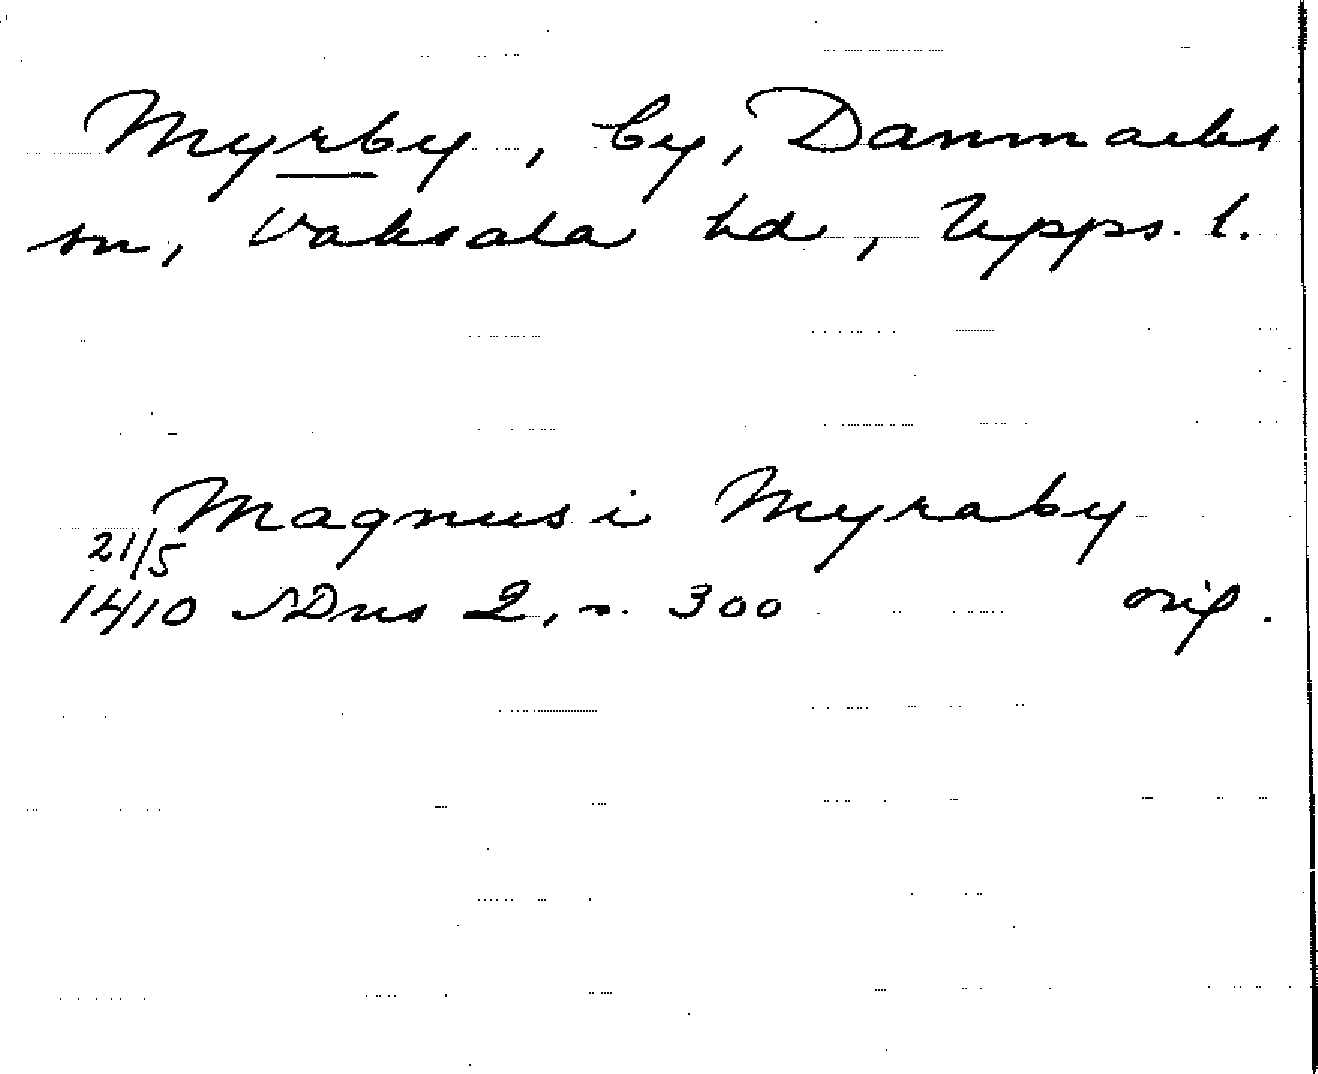 Myrby, by, Danmarks
sn, Vaksala hd, Upps. l.
Magnus i Myraby
21/5
1410 SDns 2, s. 300 orig.